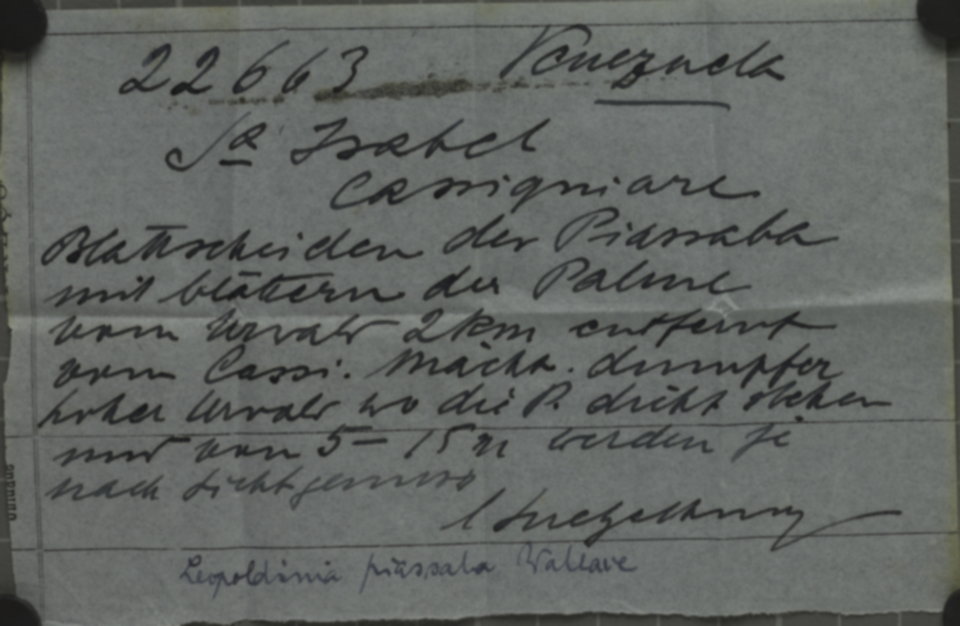 22663 Venezuela
Sa Isabel
Cassiquiare
Blattscheiden der Piassaba
mit blättern der Palme
vom Urwald 2km entfernt
vom Cassi. Mächt. dumpfer
hoher Urwald wo die P. dicht stehen
und von 5 - 15 m werden je
nach Lichtgenuss
Leopoldinia piassaba Wallace